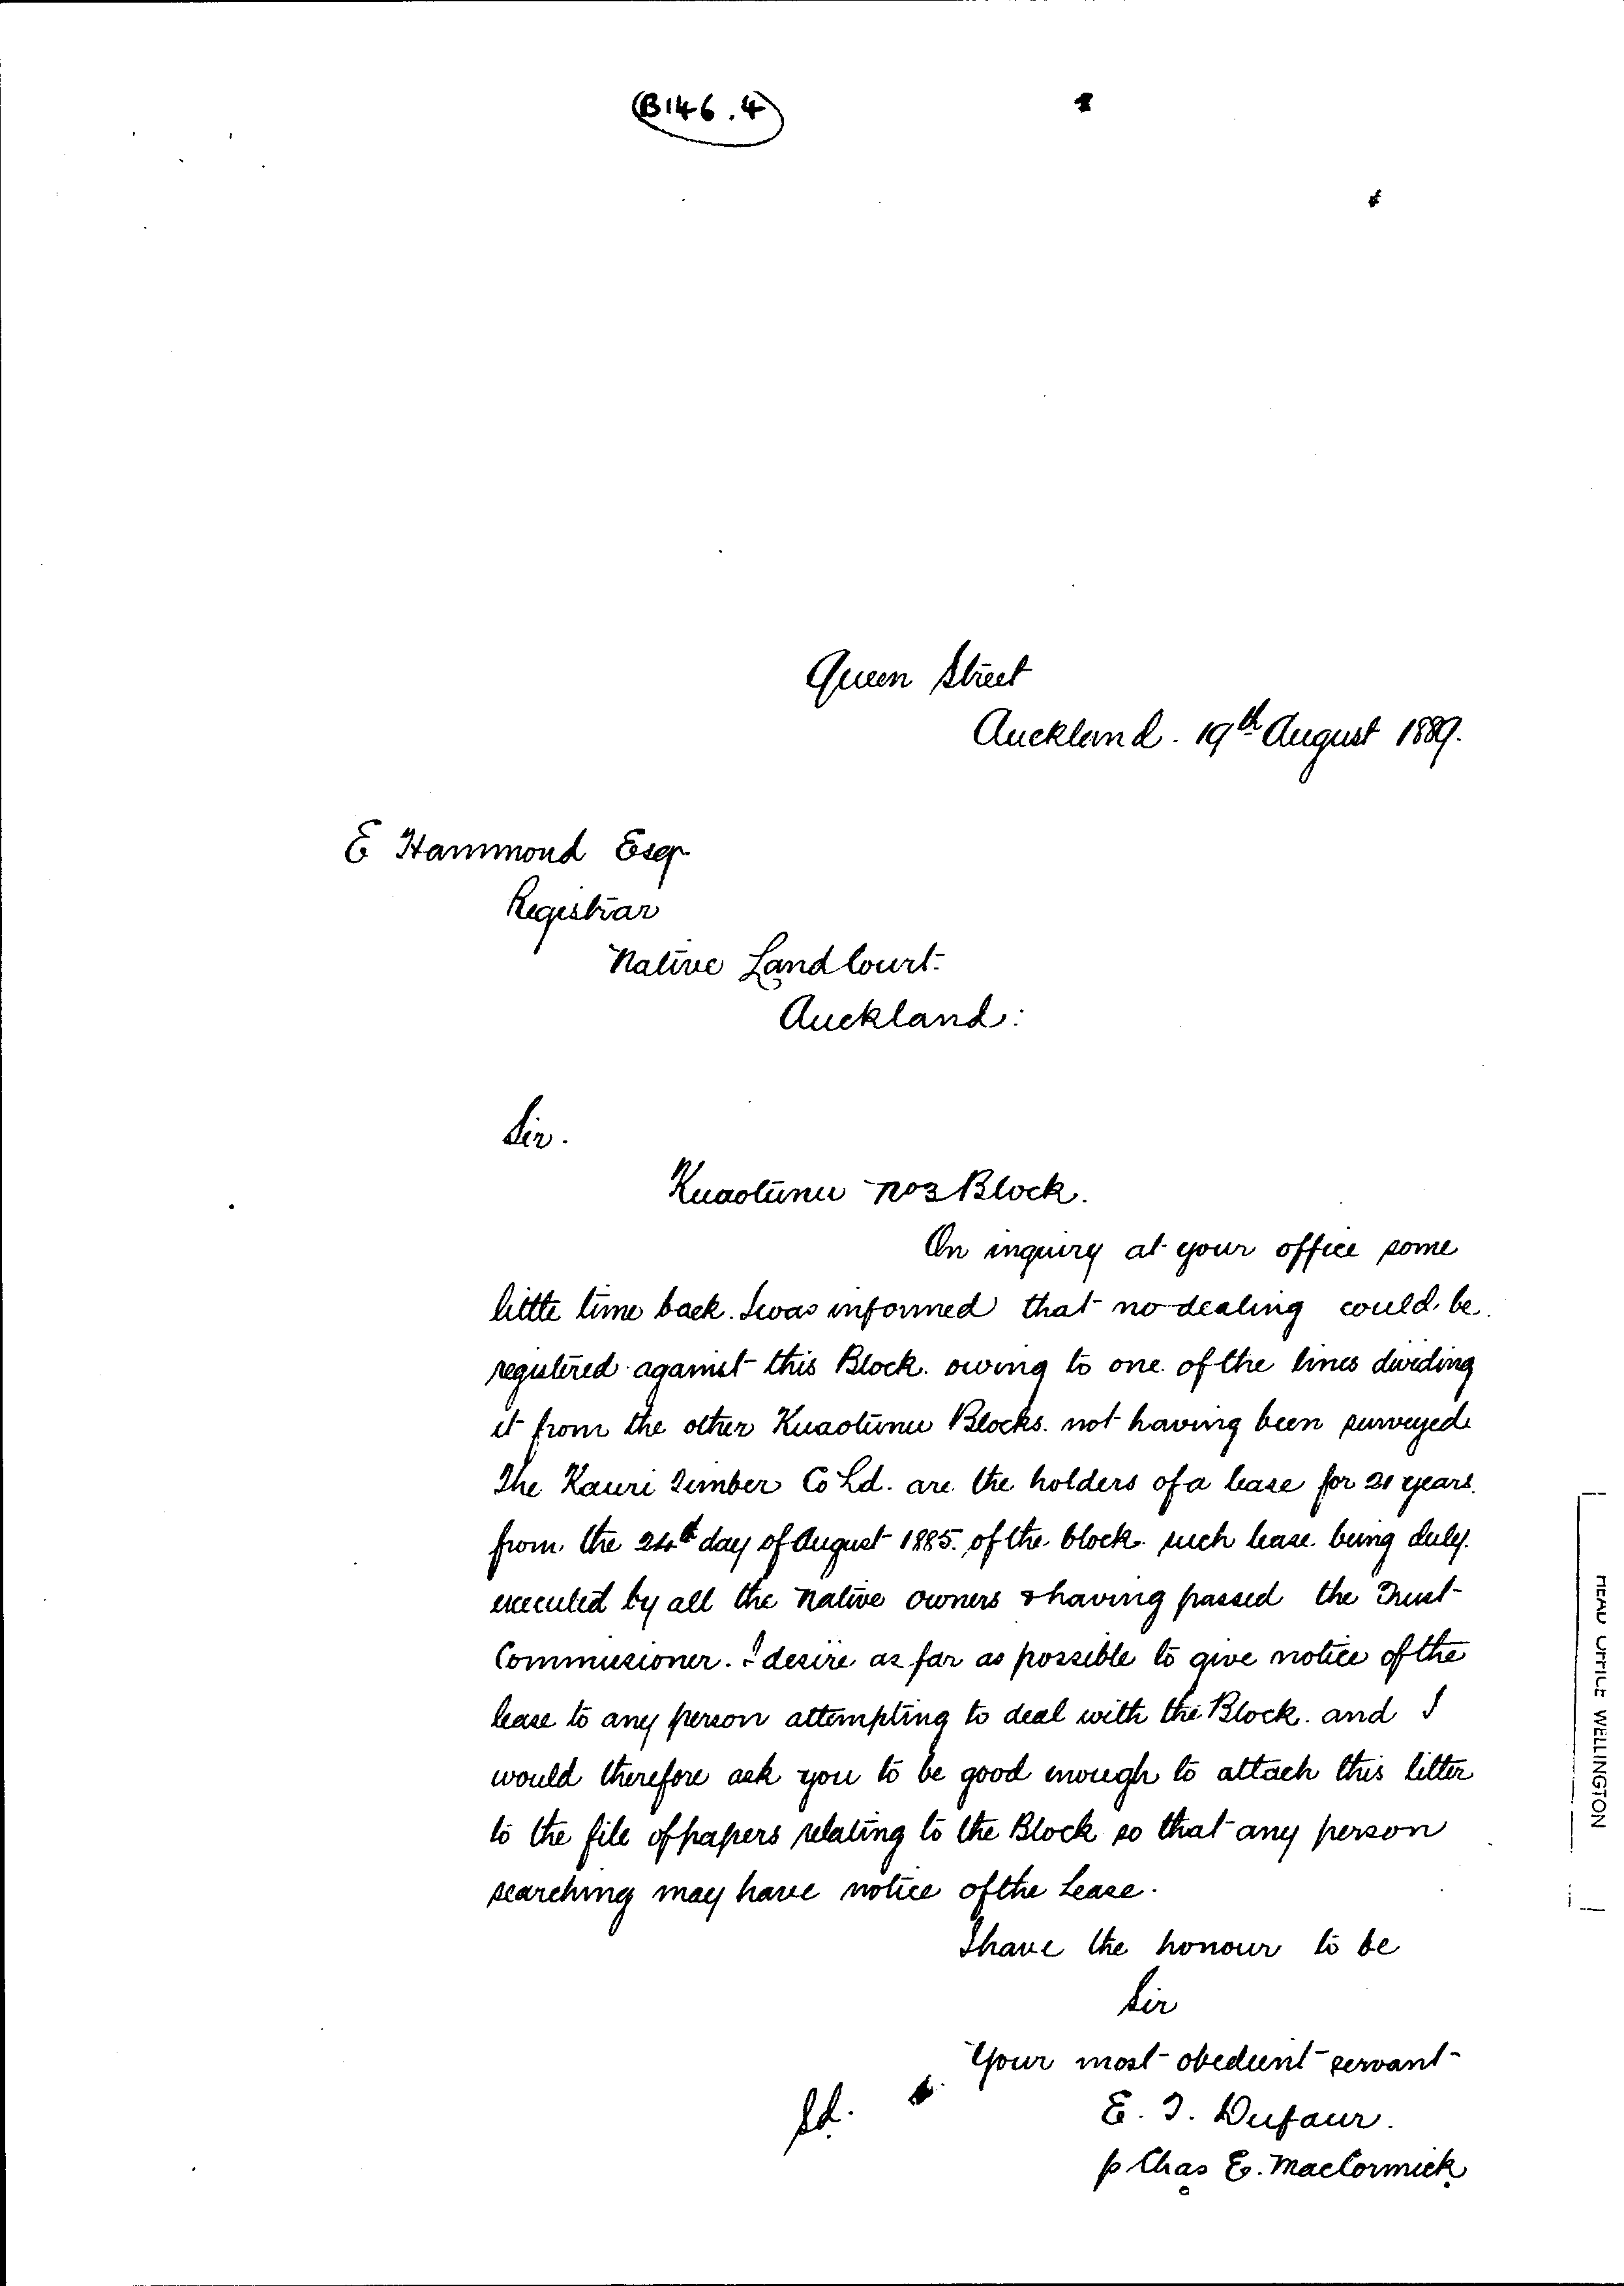 (B146.4)
Queen Street
Auckland. 19th August 1889.
E Hammond Esqr
Registrar
Native Land Court.
Auckland:
Sir.
Kuaotunu No 3 Block.
On inquiry at your office some
little time back. I was informed that no dealing could be
registered against this Block. owing to one of the lines dividing
it from the other Kuaotunu Blocks. not having been surveyed
The Kauri Timber Co Ld. are the holders of a lease for 21 years.
from the 24th day of August 1885. of the block. such lease being duly.
executed by all the Native owners & having passed the Trust
Commissioner. I desire as far as possible to give notice of the
lease to any person attempting to deal with the Block. and I
would therefore ask you to be good enough to attach this letter
to the file of papers relating to the Block so that any person
searching may have notice of the Lease.
I have the honour to be
Sir
Your most obedient servant
Sd. E. T. Dufaur.
p Chas E. MacCormick
HEAD OFFICE WELLINGTON